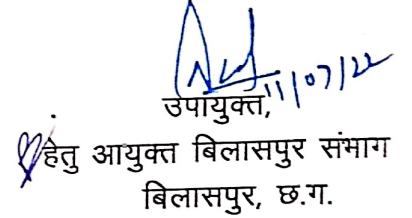 11/07/22
उपायुक्त,
हेतु आयुक्त बिलासपुर संभाग
बिलासपुर, छ.ग.